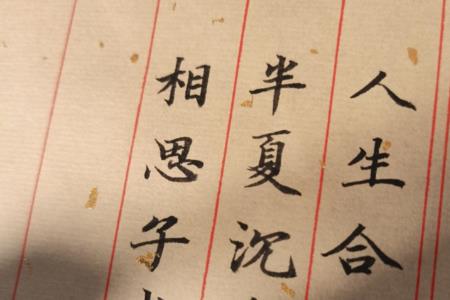 人生合
半夏沉
相思子